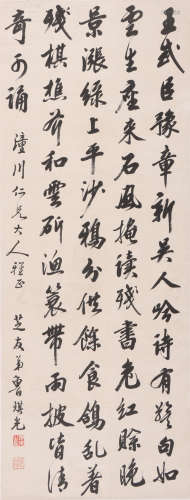 王武臣豫章新吴人吟詩有警句如
雲生座來石風掩讀殘書老紅賒晚
景漲綠上平沙鴉分供餘食鴿亂著
殘棋樵斧和雲斫漁簑帶雨披皆清
奇可誦
潼川仁兄大人雅正
芝友弟魯琪光